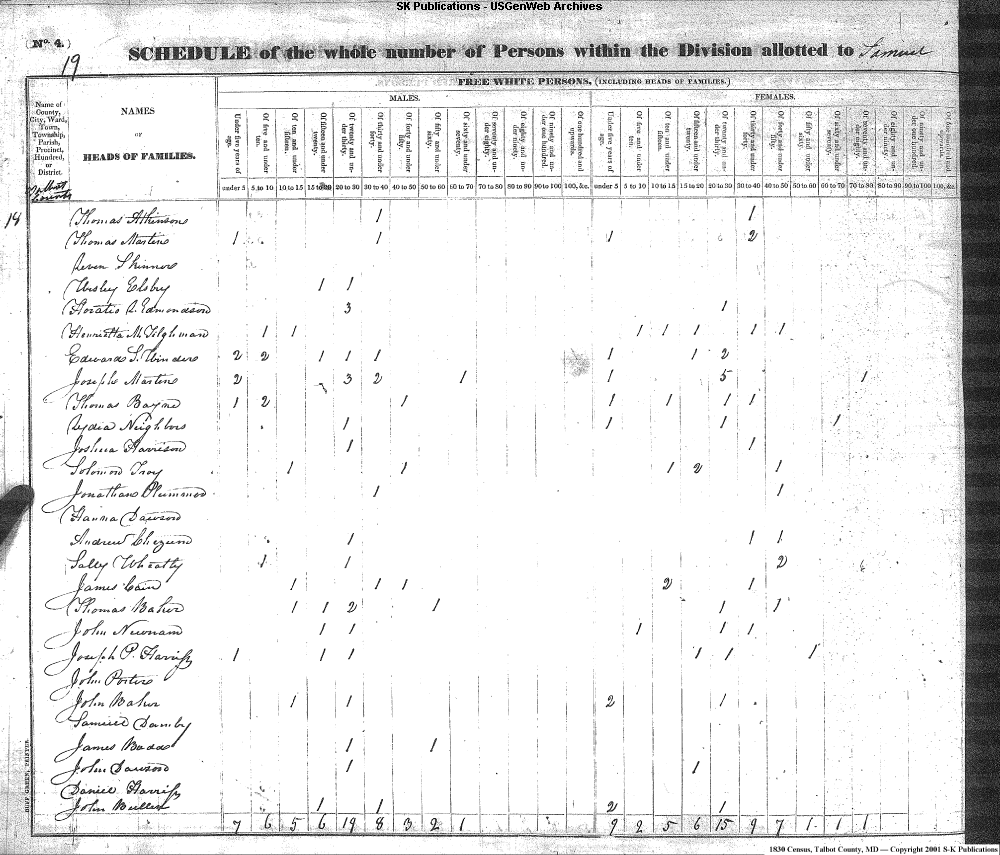 SK Publications - USGenWeb Archives
(No. 4.)
19
SCHEDULE of the whole number of Persons within the Division allotted to Samuel
FREE WHITE PERSONS, (INCLUDING HEADS OF FAMILIES.)
MALES. FEMALES.
Name of County, City, Ward, Town, Township, Parish, Precinct, Hundred, or District.
NAMES
OR
HEADS OF FAMILIES.
Under five years of age. Of five and under ten. Of ten and under fifteen. Of fifteen and under twenty. Of twenty and under thirty. Of thirty and under forty. Of forty and under fifty. Of fifty and under sixty. Of sixty and under seventy. Of seventy and under eighty. Of eighty and under ninety. Of ninety and under one hundred. Of one hundred and upwards. Under five years of age. Of five and under ten. Of ten and under fifteen. Of fifteen and under twenty. Of twenty and under thirty. Of thirty and under forty. Of forty and under fifty. Of fifty and under sixty. Of sixty and under seventy. Of seventy and under eighty. Of eighty and under ninety. Of ninety and under one hundred. Of one hundred and upwards.
under 5 5 to 10 10 to 15 15 to 20 20 to 30 30 to 40 40 to 50 50 to 60 60 to 70 70 to 80 80 to 90 90 to 100 100, &c. under 5 5 to 10 10 to 15 15 to 20 20 to 30 30 to 40 40 to 50 50 to 60 60 to 70 70 to 80 80 to 90 90 to 100 100, &c
Talbott County
14 Thomas Atkinson 1 1
Thomas Martin 1 1 1 2
Skinner
Elsby 1 1
Horatio Edmondson 3 1
Henrietta M. Tilghman 1 1 1 1 1 1 1
Edward S. Winder 2 2 1 1 1 1 1 2
Joseph Martin 2 3 2 1 1 5 1
Thomas Bayne 1 2 1 1 1 1 1
Lydia Neighbors 1 1 1 1
Joshua Harrison 1 1
Solomon Troy 1 1 1 2 1
Jonathan Plummer 1 1
Hanna Dawson
Andrew Chezum 1 1 1
Sally Wheatly 1 1 2
James Cain 1 1 1 2 1
Thomas Baker 1 1 2 1 1 1
John Newnam 1 1 1 1 1
Joseph P. Harriss 1 1 1 1 1 1
John Porter
John Baker 1 1 2 1
Samuel Damby
James Badd 1 1
John Dawson 1 1
Daniel Harriss
John Bullen 1 1 2 1
7 6 5 6 19 8 3 2 1 9 2 5 6 15 9 7 1 1 1
DUFF GREEN, PRINTER.
1830 Census, Talbot County, MD — Copyright 2001 S-K Publications